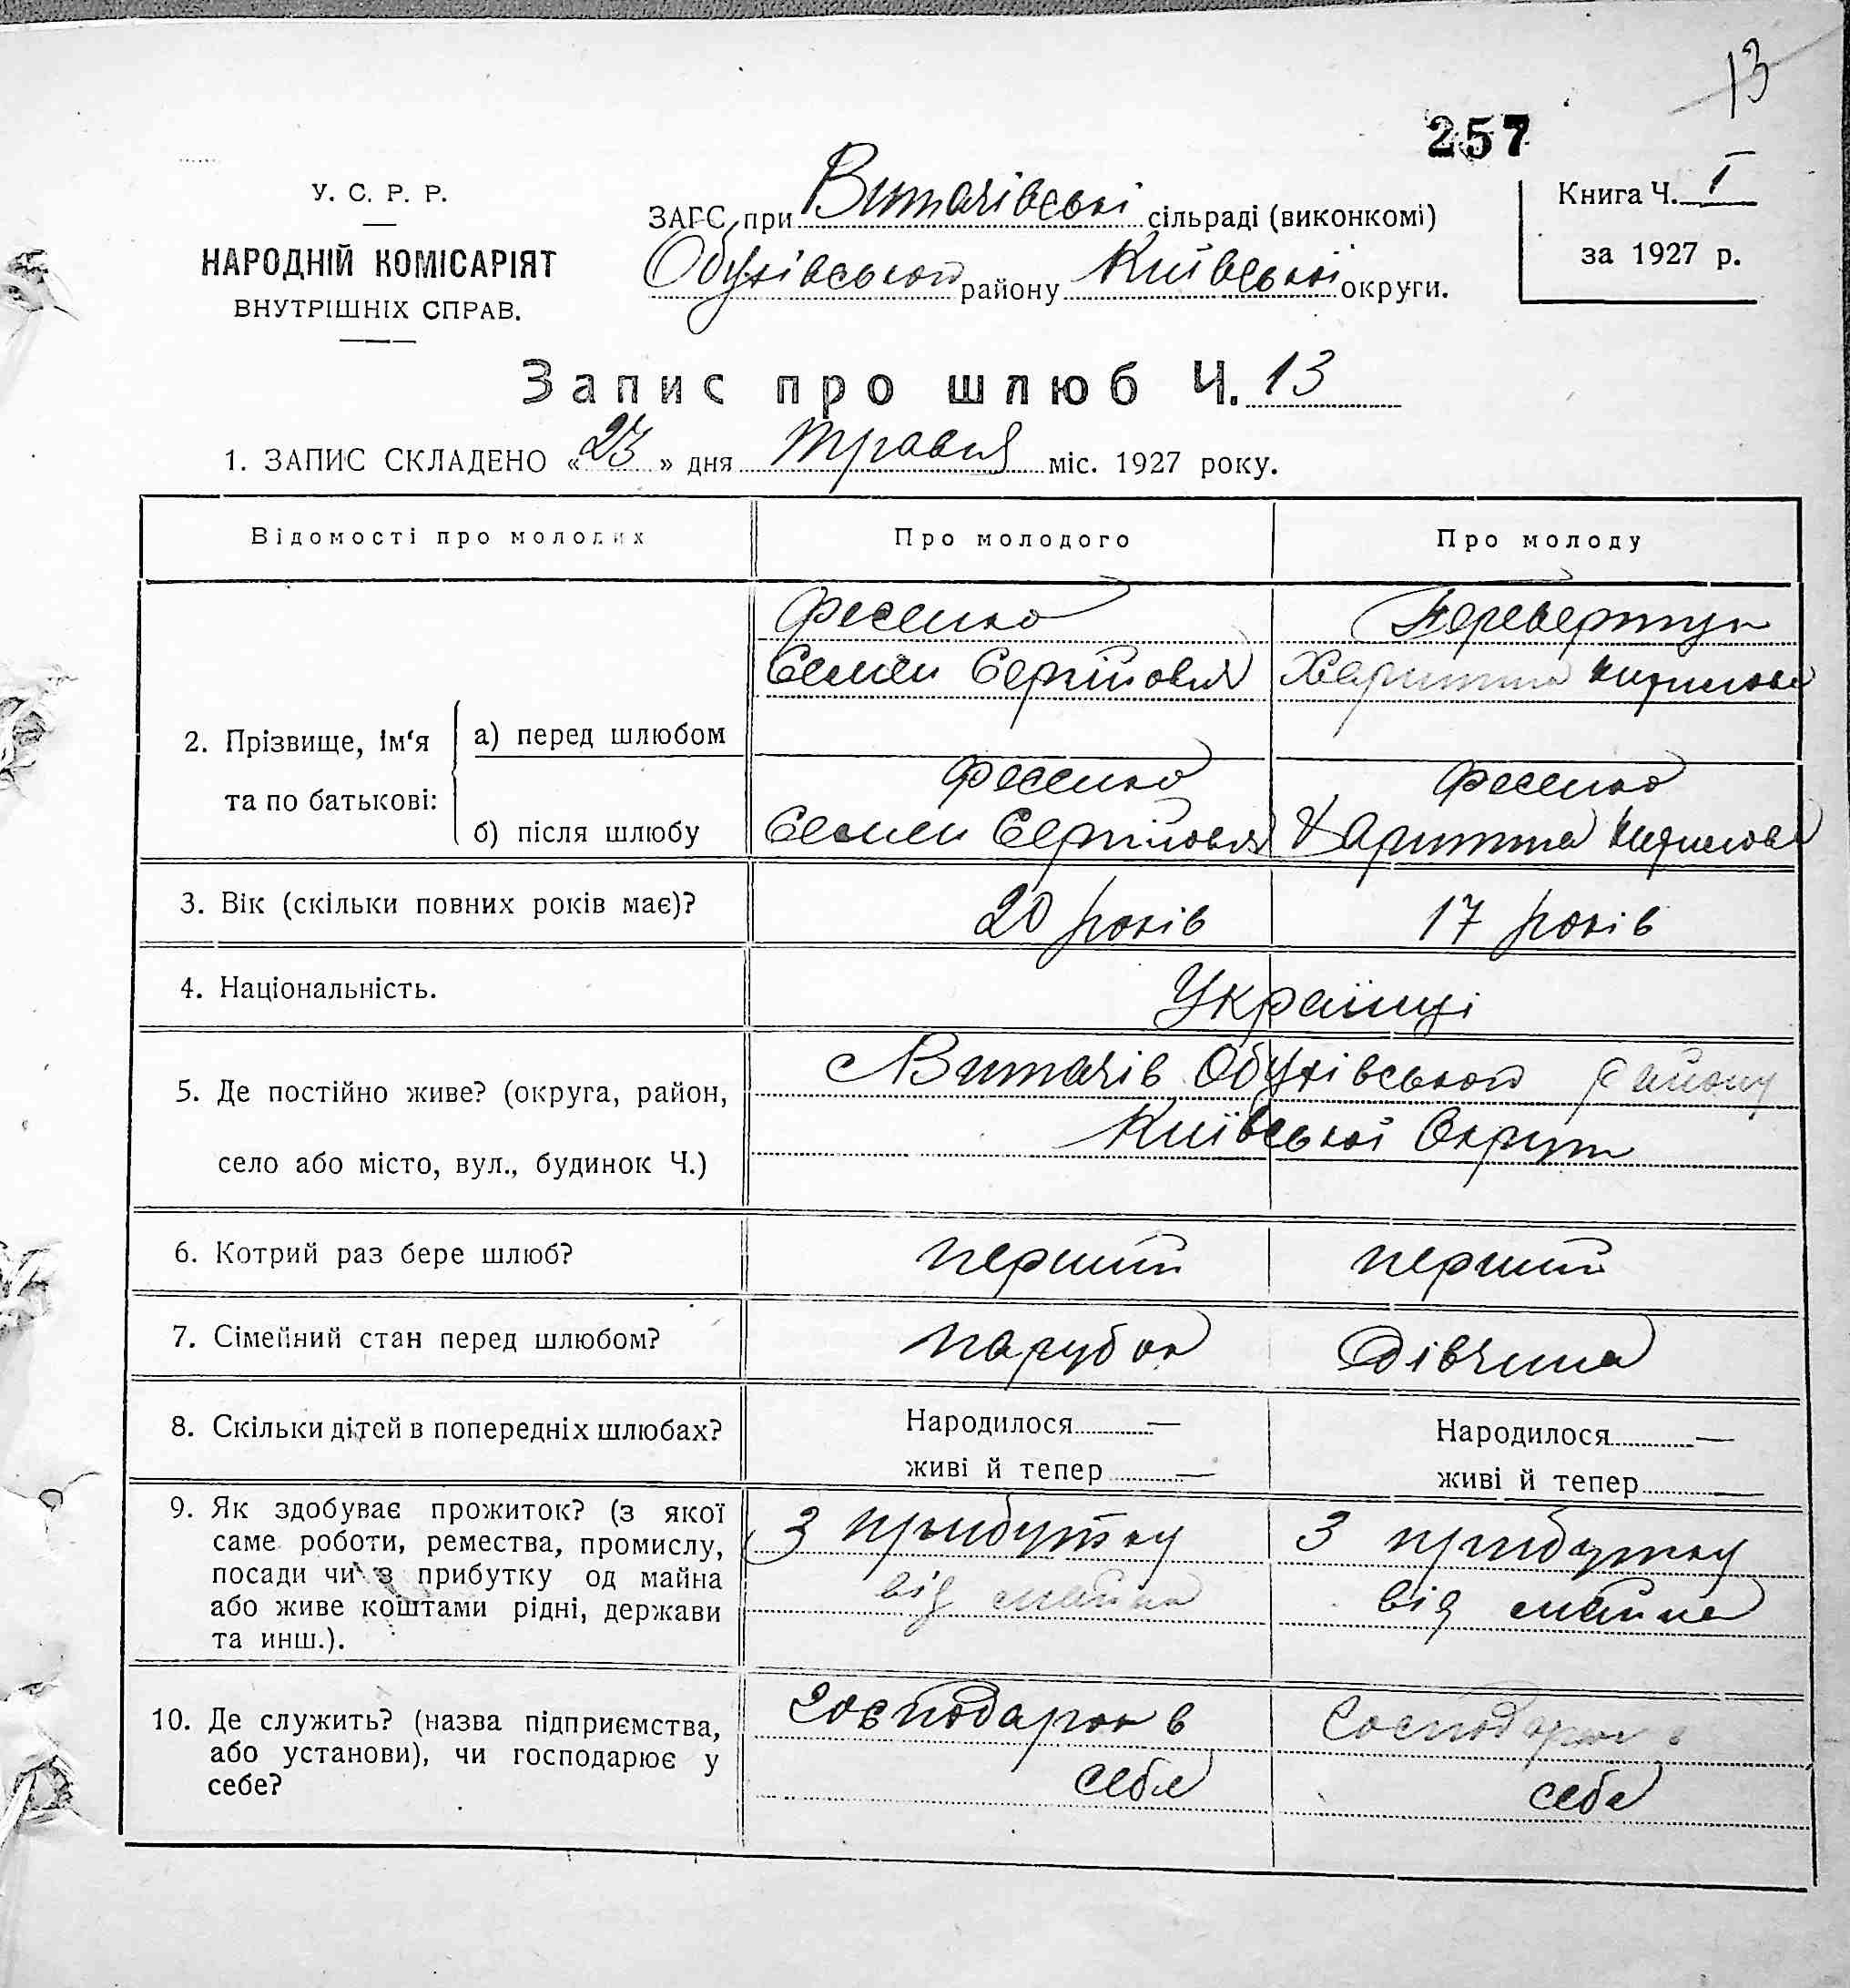 13
257
У. С. Р. Р.
НАРОДНІЙ КОМІСАРІЯТ
ВНУТРІШНІХ СПРАВ.
ЗАГС при Витачівські сільраді (виконкомі)
Обухівського району Київської округи.
Книга Ч. I
за 1927 р.
Запис про шлюб Ч. 13
1. ЗАПИС СКЛАДЕНО «23» дня травня міс. 1927 року.
Відомості про молодих
Про молодого
Про молоду
2. Прізвище, ім'я та по батькові:
а) перед шлюбом
Фесенко
Семен Сергійович
Перевертун
Харитина Кирилова
б) після шлюбу
Фесенко
Семен Сергійович
Фесенко
Харитина Кирилова
3. Вік (скільки повних років має)?
20 років
17 років
4. Національність.
Українці
5. Де постійно живе? (округа, район,
село або місто, вул., будинок Ч.)
с Витачів Обухівського району
Київської Округи
6. Котрий раз бере шлюб?
перший
перший
7. Сімейний стан перед шлюбом?
парубок
дівчина
8. Скільки дітей в попередніх шлюбах?
Народилося —
живі й тепер —
Народилося —
живі й тепер —
9. Як здобуває прожиток? (з якої
саме роботи, ремества, промислу,
посади чи з прибутку од майна
або живе коштами рідні, держави
та инш.).
З прибутку
від майна
З прибутку
від майна
10. Де служить? (назва підприємства,
або установи), чи господарює у
себе?
Господарює в
себе
Господарює в
себе